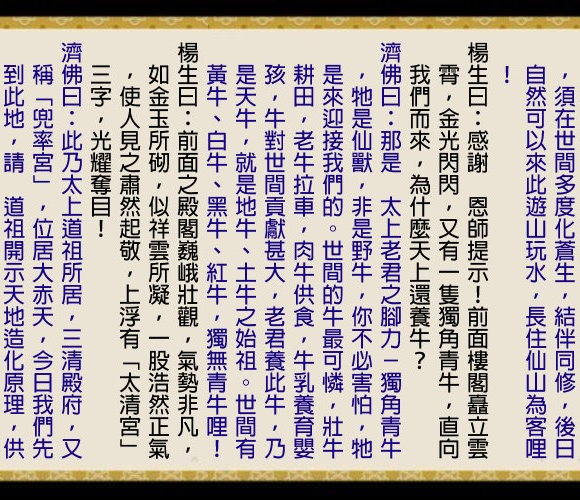 ，須在世間多度化蒼生，結伴同修，後日
自然可以來此遊山玩水，長住仙山為客哩
！
楊生曰：感謝　恩師提示！前面樓閣矗立雲
霄，金光閃閃，又有一隻獨角青牛，直向
我們而來，為什麼天上還養牛？
濟佛曰：那是　太上老君之腳力－獨角青牛
，牠是仙獸，非是野牛，你不必害怕，牠
是來迎接我們的。世間的牛最可憐，壯牛
耕田，老牛拉車，肉牛供食，牛乳養育嬰
孩，牛對世間貢獻甚大，老君養此牛，乃
是天牛，就是地牛、土牛之始祖。世間有
黃牛、白牛、黑牛、紅牛，獨無青牛哩！
楊生曰：前面之殿閣巍峨壯觀，氣勢非凡，
如金玉所砌，似祥雲所凝，一股浩然正氣
，使人見之肅然起敬，上浮有「太清宮」
三字，光耀奪目！
濟佛曰：此乃太上道祖所居，三清殿府，又
稱「兜率宮」，位居大赤天，今日我們先
到此地，請　道祖開示天地造化原理，供